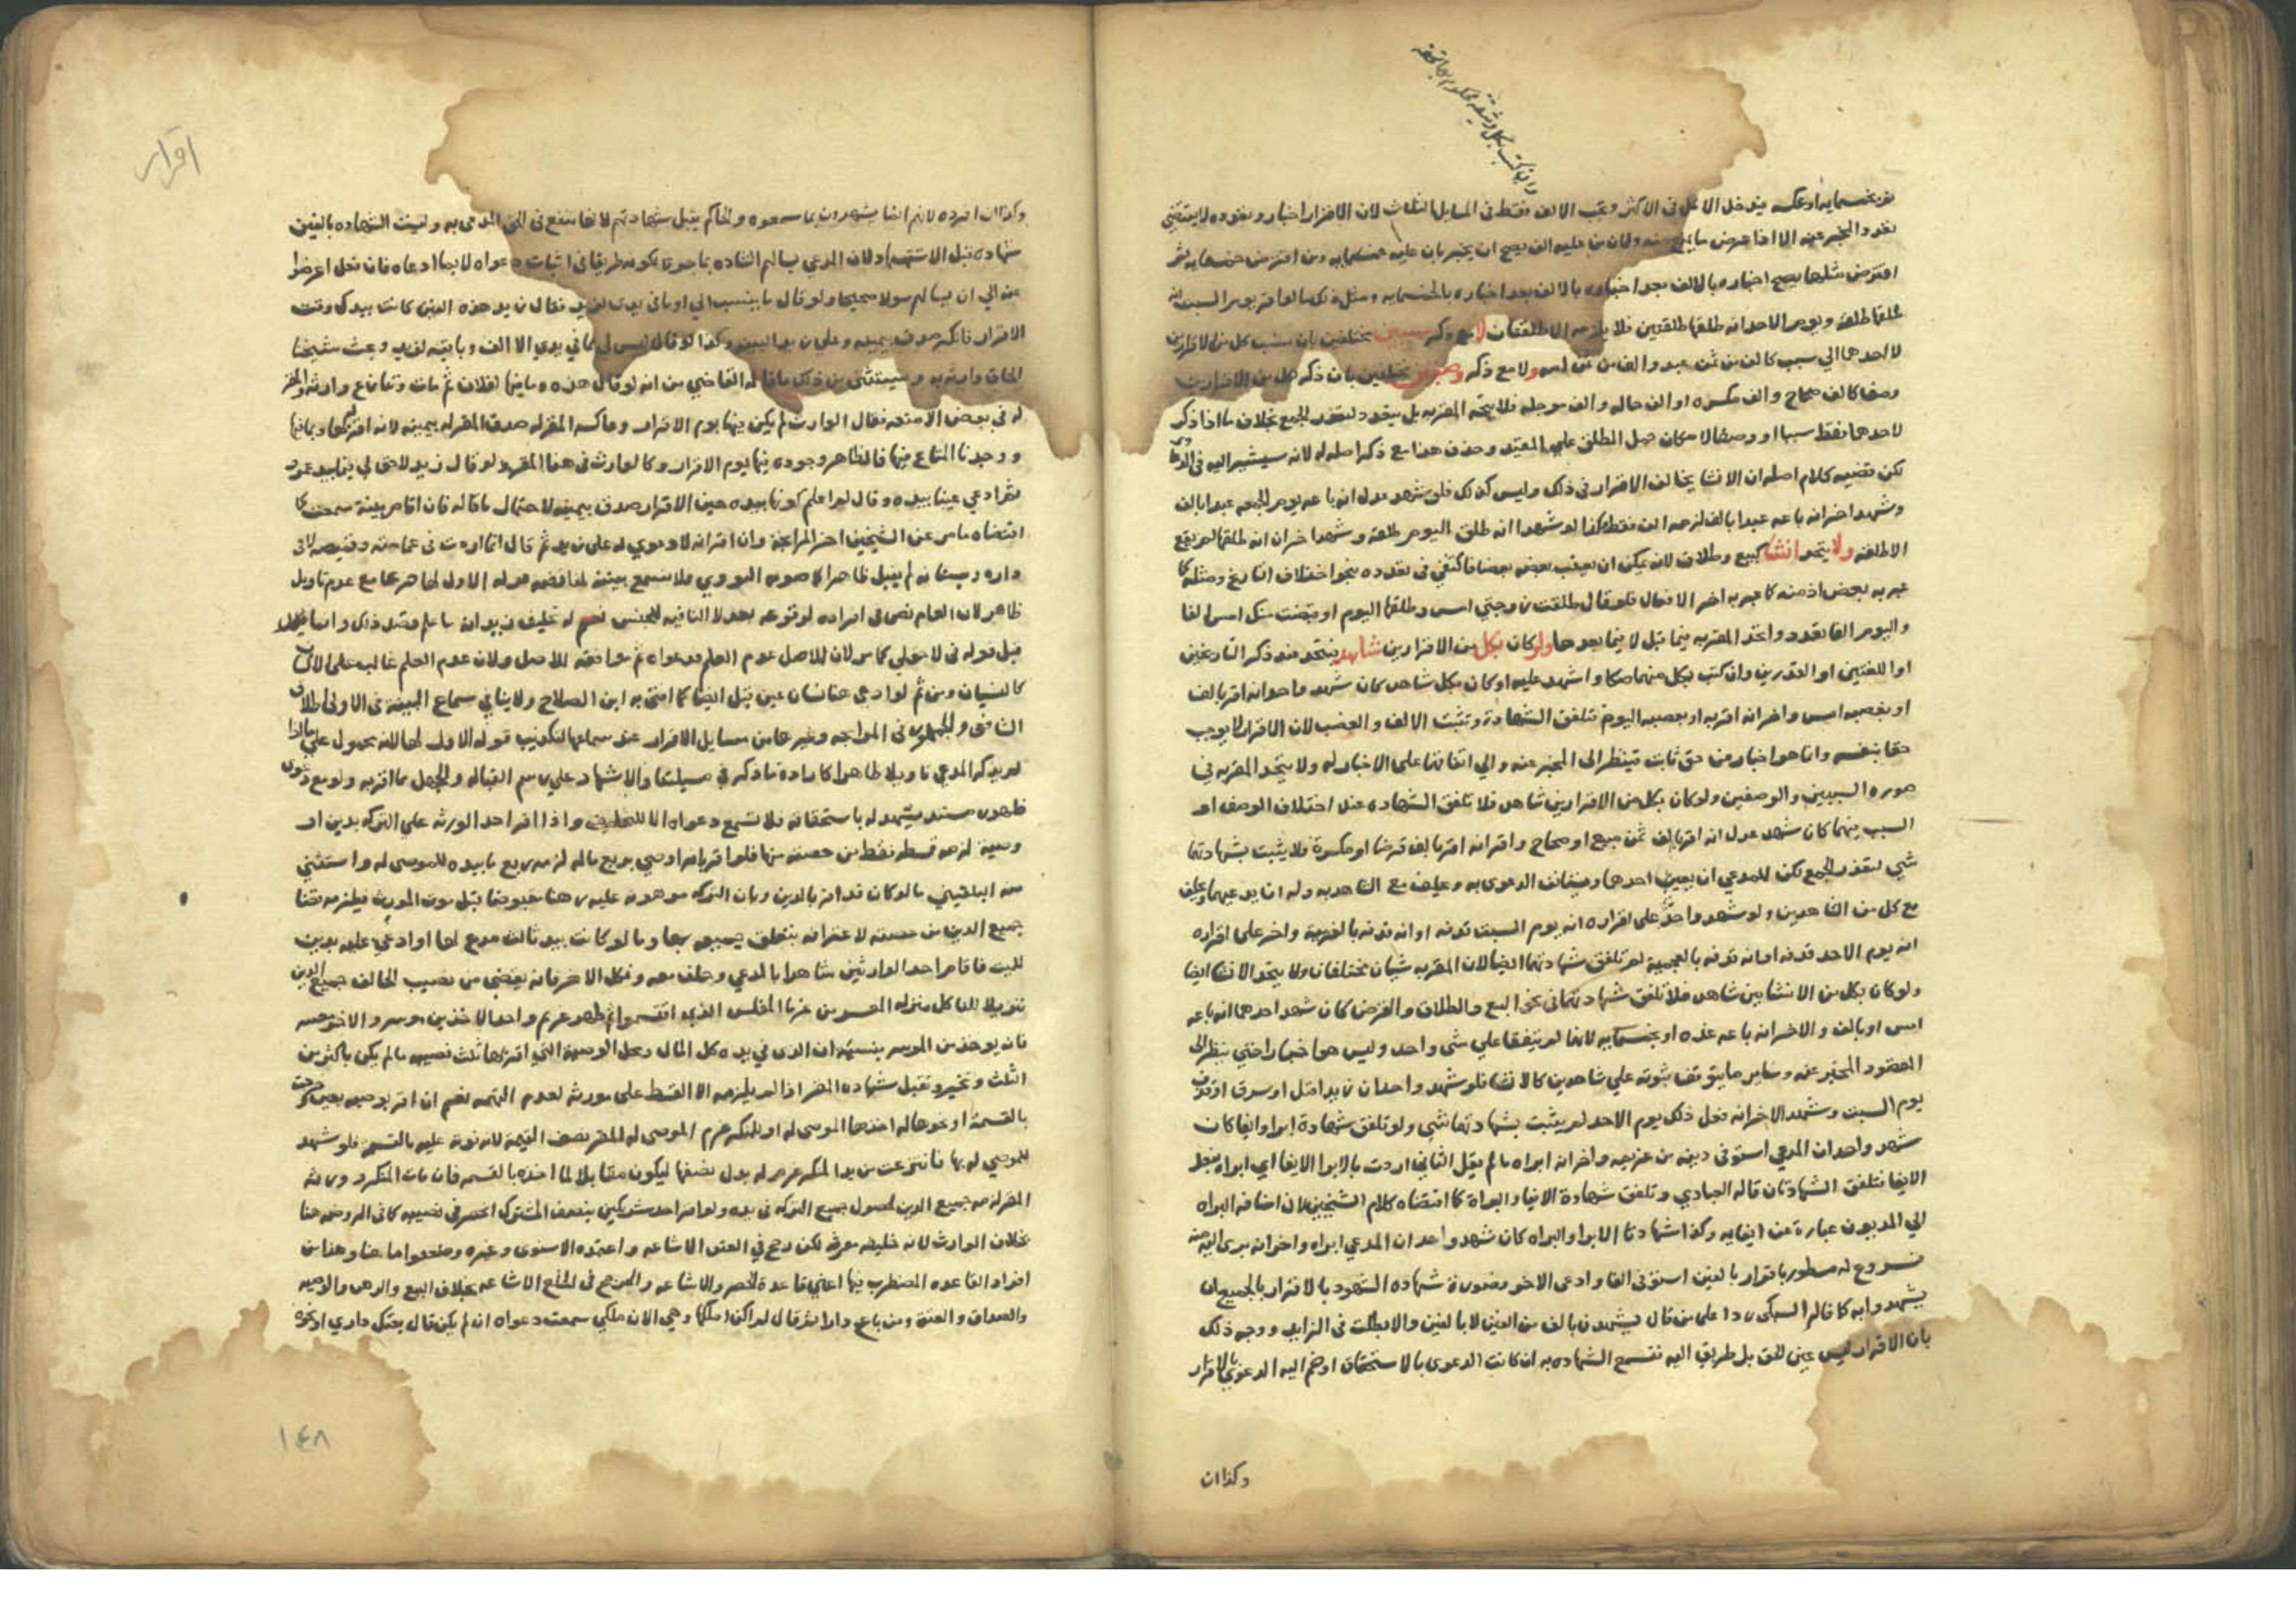 وان كتب بكل وثيقة محكوم بها تحقه
بخمسمايه او عكسه يدخل الاقل في الاكثر وتجب الالف فقط في المسايل الثلاث لان الاقرار اخبار وتعدده لا يقتضي
تعدد المخبر عنه الا اذا عرض ما يمنع منه ولان من عليه الف يصح ان يخبر بان عليه خمسمايه ومن اقترض خمسمايه ثم
اقترض مثلها يصح اخباره بالالف بعد اخباره بالخمسمايه ومثل ذلك ما لو اقر يوم السبت انه
طلقها طلقة ويوم الاحد انه طلقها طلقتين فلا يلزمه الا طلقتان لا مع ذكر سببين مختلفين بان نسب كل من الاقرارين
لاحدهما الي سبب كالف من ثمن عبد والف من ثمن امه ولا مع ذكر وصفين مختلفين بان ذكر كل من الاقرارين
وصفا كالف صحاح والف مكسره او الف حاله والف موجله فلا يتحد المقر به بل يتعدد لتعذر الجمع بخلاف ما اذا ذكر
لاحدهما فقط سببا او وصفا لامكان حمل المطلق علي المقيد وحذف هذا مع ذكر اصله له لانه سيشير اليه في
لكن قضيه كلام اصله ان الانشا يخالف الاقرار في ذلك وليس كذلك فلو شهد عدل انه باعه يوم الجمعه عبدا بالف
وشهد اخر انه باعه عبدا بالف لزمه الف فقط وكذا لو شهد انه طلق اليوم طلقة وشهد اخر انه طلقها لم يقع
الا طلقه ولا يتحد انشا كبيع وطلاق لانه يمكن ان يعقب بعضه بعضا فاكتفي في تعدده بنحو اختلاف التاريخ ومثله كما
عبر به بعض اذ منه كما عبر به اخر الافعال فلو قال طلقت زوجتي امس وطلقتها اليوم او قبضت منك امس الفا
واليوم الفا تعدد واتحد المقر به فيما قبل لا فيما بعدها ولو كان بكل من الاقرارين شاهد فيتحد عند ذكر التاريخين
او اللغتين او القدرين وان كتب بكل منهما صكا واشهد عليه او كان بكل شاهد كان شهد واحد انه اقر بالف
او بغصبه امس واخر انه اقر به او بغصبه اليوم تلفق الشهادة وتثبت الالف والغصب لان الاقرار لا يوجب
حقا بنفسه وانما هو اخبار عن حق ثابت فينظر الى المخبر عنه والي اتفاقهما على الاخبار له ولا يتحد المقر به في
صوره السببين والوصفين ولو كان بكل من الاقرارين شاهد فلا تلفق الشهاده عند اختلاف الوصف او
السبب بينهما كان شهد عدل انه اقر بالف ثمن مبيع او صحاح واخر انه اقر بالف قرضا او مكسرة فلا يثبت بشهادتهما
شي لتعذر الجمع لكن للمدعي ان يعين احدهما ويستانف الدعوى به ويحلف مع الشاهد به وله ان يدعيهما ويحلف
مع كل من الشاهدين ولو شهد واحد على اقراره انه يوم السبت قذفه او انه قذفه بالعربية واخر على اقراره
انه يوم الاحد قذفه او انه قذفه بالعجمية لم تلفق شهادتهما ايضا لان المقر به شيان مختلفان ولا يتحد الانشا ايضا
ولو كان بكل من الانشايين شاهد فلا تلفق شهادتهما في نحو البيع والطلاق والقرض كان شهد احدهما انه باعه
امس او بالف والاخر انه باعه غده او بخمسمايه لانهما لم يتفقا علي شي واحد وليس هو اخبارا حتي ينظر الى
المقصود المخبر عنه وساير ما يتوقف ثبوته علي شاهدين كالانشا فلو شهد واحد ان زيدا قتل او سرق او قذف
يوم السبت وشهد الاخر انه فعل ذلك يوم الاحد لم يثبت بشهادتهما شي ولو تلفق شهادة ابرا وايفا كان
شهد واحد ان المدعي استوفى دينه من غريمه واخر انه ابراه ما لم يقل الثاني اردت بالابرا الايفا اي ابراه بفعل
الايفا فتلفق الشهادتان قاله العبادي وتلفق شهادة الايفا والبراة كما اقتضاه كلام الشيخين لان اضافه البراه
الي المديون عبارة عن ايفايه وكذا شهادتا الابرا والبراه كان شهد واحد ان المدعي ابراه واخر انه برى اليه منه
فروع له مسطور باقرار بالفين استوفى الفا وادعى الاخر فصورة شهاده الشهود بالاقرار بالجميع ان
يشهدوا به كما قاله السبكى ردا على من قال يشهدون بالف من الفين لا بالفين والا بطلت في الزايد ووجه ذلك
بان الاقرار ليس عين الحق بل طريق اليه تسمع الشهاده به ان كانت الدعوى بالاستحقاق او ضم اليه الدعوي بالاقرار
وكذا ان
اقرار
وكذا ان افرده لانهم انما يشهدون بما سمعوه والحاكم يقبل شهادتهم لانها تنفع في الحق المدعى به وليست الشهاده بالفين
شهاده قبل الاستشهاد لان المدعي سالهم الشهاده بما جرى لكونه طريقا في اثبات دعواه لا بما ادعاه فان تحمل اعرضا
عن الي ان يسالهم سولا صحيحا ولو قال ما ينسب الي او ما في يدي لزيد فقال زيد هذه العين كانت بيدك وقت
الاقرار فانكر صدق بيمينه وعلى زيد البينه وكذا لو قال ليس لي مما في يدي الا الف وباقيه لزيد وبحث شيخنا
الحاق وارثه به ويستثنى من ذلك ما قاله القاضي من انه لو قال هذه وما فيها لفلان ثم مات وتنازع وارثه والمقر
له في بعض الامتعه فقال الوارث لم يكن فيها يوم الاقرار وعاكسه المقر له صدق المقر له بيمينه لانه اقر بها وبما فيها
ووجدنا المتاع فيها فالظاهر وجوده فيها يوم الاقرار وكالوارث في هذا المقر ولو قال زيد لا حق لي فيما بيد عمرو
ثم ادعي عينا بيده وقال لم اعلم كونها بيده حين الاقرار صدق بيمينه لاحتمال ما قاله فان اقام بينة سمعت كما
اقتضاه ما مر عن الشيخين اخر المرابحة وان اقر انه لا دعوي له على زيد ثم قال انما اردت في عمامته وقميصه لا في
داره وبستانه لم يقبل ظاهرا كما صوبه النووي فلا تسمع بينته لمناقضه قوله الاول لظاهرها مع عدم تاويل
ظاهر لان العام نص في افراده لوقوعه بعد لا النافيه للجنس نعم له تحليف زيد انه ما علم قصد ذلك وانما
قبل قوله في لا حق لي كما مر لان الاصل عدم العلم فدعواه ثم موافقه للاصل ولان عدم العلم غالب على الانسان
كالنسيان ومن ثم لو ادعى هنا نسيان عين قبل ايضا كما افتى به ابن الصلاح ولا ينافي سماع البينه في الاولى اطلاق
الشافعي والجمهور في المرابحه وغيرها من مسايل الاقرار عند سماعها لتكذيب قوله الاول لها لانه محمول علي ما اذا
لم يذكر المدعي تاويلا ظاهرا كارادة ما ذكر في مسيلتنا والاشهاد علي رسم القباله والجهل بما اقر به ولو مع دعوى
ظهور مستند يشهد له باستحقاقه فلا تسمع دعواه الا للتحليف واذا اقر احد الورثه علي التركه بدين او
وصية لزمه قسطه فقط من حصته منها فلو اقر بانه اوصي بربع ماله لزمه ربع ما بيده للموصى له واستثني
منه البلقيني ما لو كان قد اقر بالدين وبان التركه مرهونه عليه رهنا مقبوضا قبل موت المورث فيلزمه قضا
جميع الدين من حصته لاعترافه بتعلق جميعه بها وما لو كانت بيد ثالث مودع لها او ادعي عليه بدين
للميت فاقام احد الوارثين شاهدا بالمدعي وحلف معه ونكل الاخر فانه يقضي من نصيب الحالف جميع الدين
تنزيلا للناكل منزله المعسر من غرما المفلس الذين اقتسموا ثم ظهر غريم واحد الاخذين موسر والاخر معسر
فانه يوخذ من الموسر بنسبته ان الذى في يده كل المال ومحل الوصية التي اقر بها ثلث نصيبه ما لم يكن باكثر من
الثلث وتخير وتقبل شهاده المقر اذا لم يلزمه الا القسط على مورثه لعدم التهمه نعم ان اقر بوصيه بعين وخرجت
بالقسمة او نحوها له اخذها الموصى له او للمنكر غرم الموصى له المقر نصف القيمة لانه فوته عليه بالقسمه فلو شهد
للموصي له بها فانتزعت من يد المنكر غرم له بدل نصفها ليكون مقابلا لما اخذه بالقسمه فان مات المنكر وورثه
المقر لزمه جميع الدين لحصول جميع التركه في يده ولو اقر احد شريكين بنصف المشترك انحصر في نصيبه كما في الروضه هنا
بخلاف الوارث لانه خليفه مورثه لكن رجح في العتق الاشاعه واعتمده الاسنوى وغيره وضعفوا ما هنا وهذا من
افراد القاعده المضطرب فيها اعني قاعدة الحصر والاشاعه والمرجح في الخلع الاشاعه بخلاف البيع والرهن والوصيه
والصداق والعتق ومن باع دارا ثم قال لم اكن املكها وهي الان ملكي سمعت دعواه ان لم يكن قال بعتك داري او نحوه
١٤٨